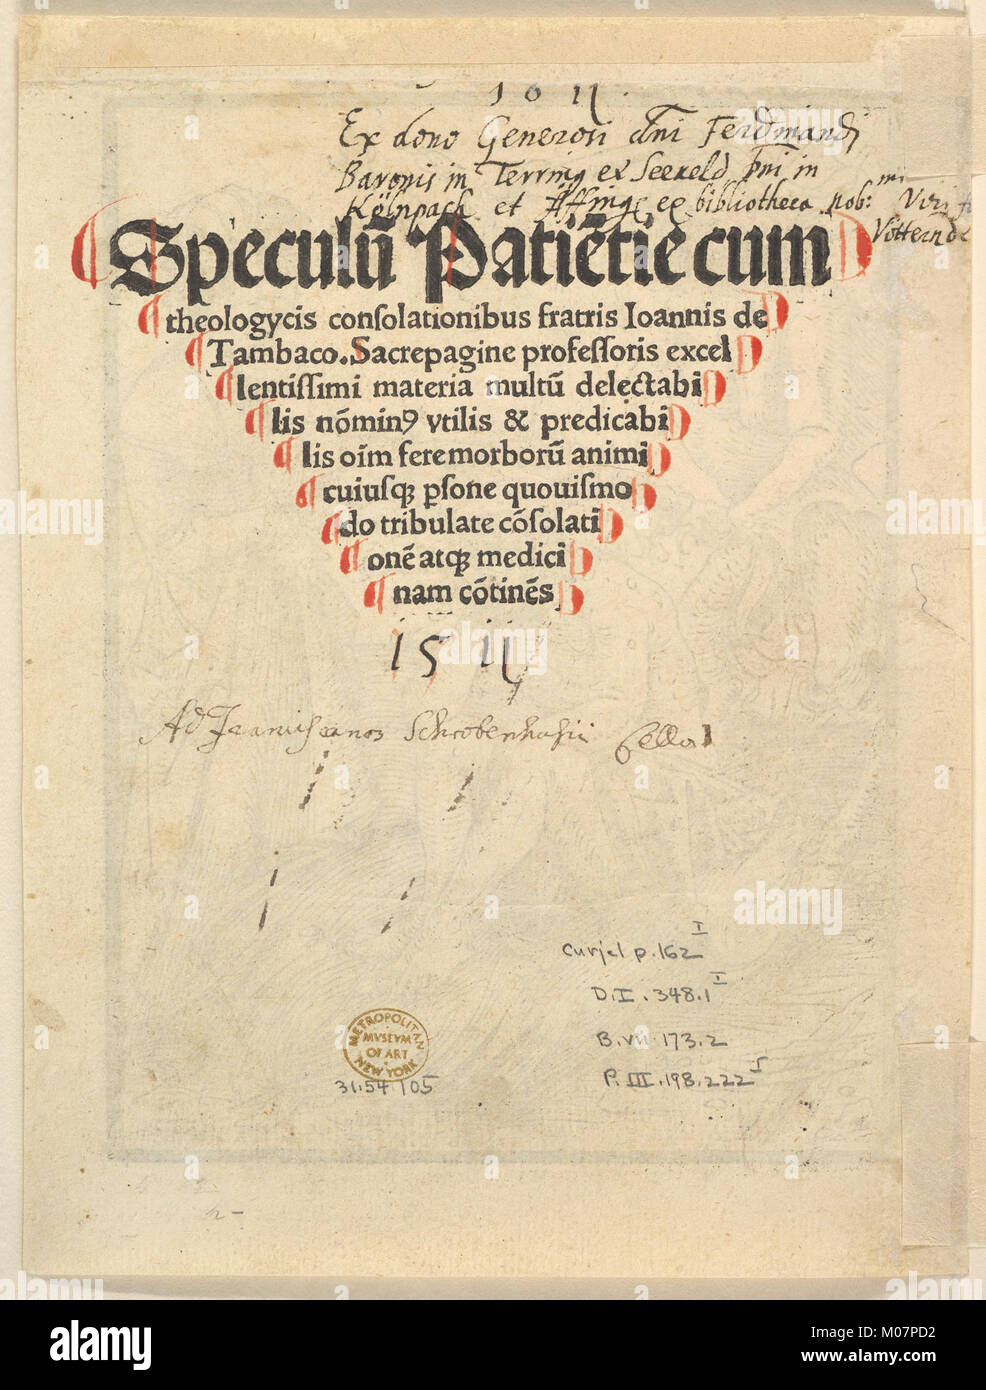 1 0 11.
Ex dono Generosi dñi Ferdinandi
Baronis in Terring et Seeveld dñi in
Kölnpach et Affing, ex bibliotheca nob: mi Viri
Vöttern de
Speculũ Patiẽtie cum
theologycis conſolationibus fratris Ioannis de
Tambaco. Sacrepagine profeſſoris excel
lentiſſimi materia multũ delectabi
lis nõminꝰ vtilis & predicabi
lis oĩm fere morborũ animi
cuiusqꝫ ꝑſone quouiſmo
do tribulate cõſolati
onẽ atqꝫ medici
nam cõtinẽs
15 11
Ad Franciscanos Schrobenhusii
Curjel p. 162 I
D.I. 348.1 I
B. VII. 173. 2
P. III. 198. 222 I
METROPOLITAN
MVSEVM
OF ART
NEW YORK
31.54.105
2 -
alamy
Image ID: M07PD2
www.alamy.com